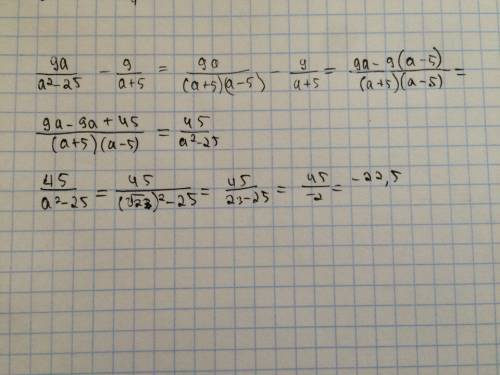 9a/(a²-25) - 9/(a+5) = 9a/((a+5)(a-5)) - 9/(a+5) = (9a-9(a-5))/((a+5)(a-5)) =
(9a-9a+45)/((a+5)(a-5)) = 45/(a²-25)
45/(a²-25) = 45/((√23)²-25) = 45/(23-25) = 45/-2 = -22,5